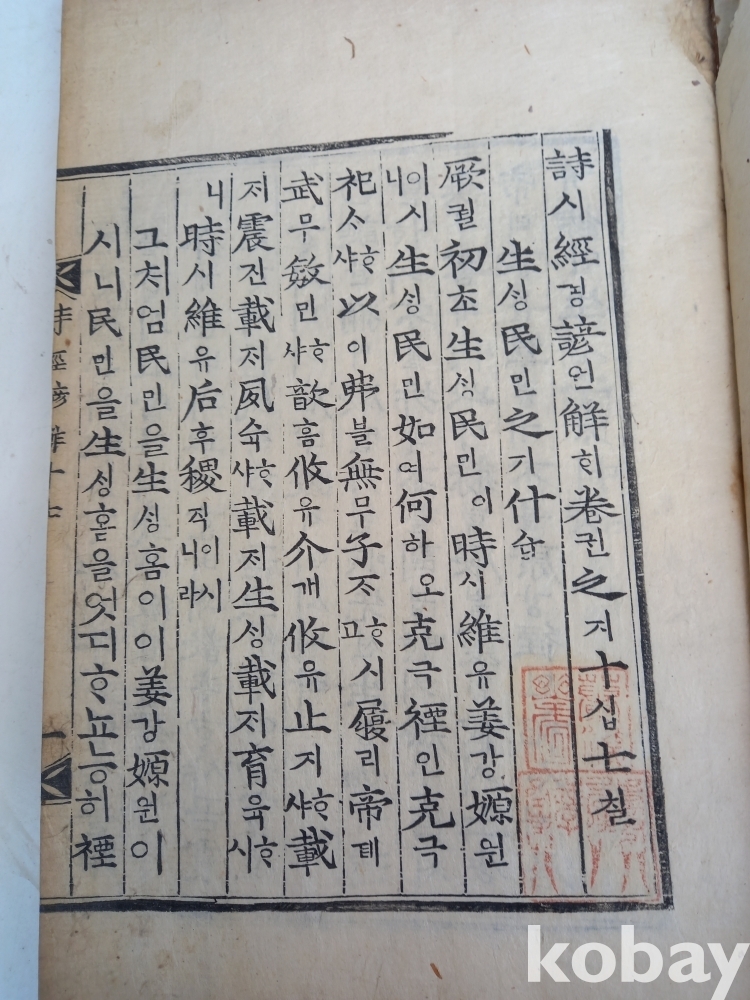 詩시經경諺언解ᄒᆡ卷권之지十십七칠
生ᄉᆡᆼ民민之지什습
厥궐初초生ᄉᆡᆼ民민이時시維유姜강嫄원
이시니生ᄉᆡᆼ民민如여何하오克극禋인克극
祀ᄉᆞᄒᆞ샤以이弗블無무子ᄌᆞᄒᆞ고시履리帝뎨
武무敏민歆흠ᄒᆞ샤攸유介개攸유止지ᄒᆞ샤載
ᄌᆡ震진載ᄌᆡ夙숙ᄒᆞ샤載ᄌᆡ生ᄉᆡᆼ載ᄌᆡ育육ᄒᆞ시
니時시維유后후稷직이시니라
그처엄民민을生ᄉᆡᆼ홈이이姜강嫄원이
시니民민을生ᄉᆡᆼ홈을엇디ᄒᆞ뇨능히禋
詩經諺解十七
一
kobay